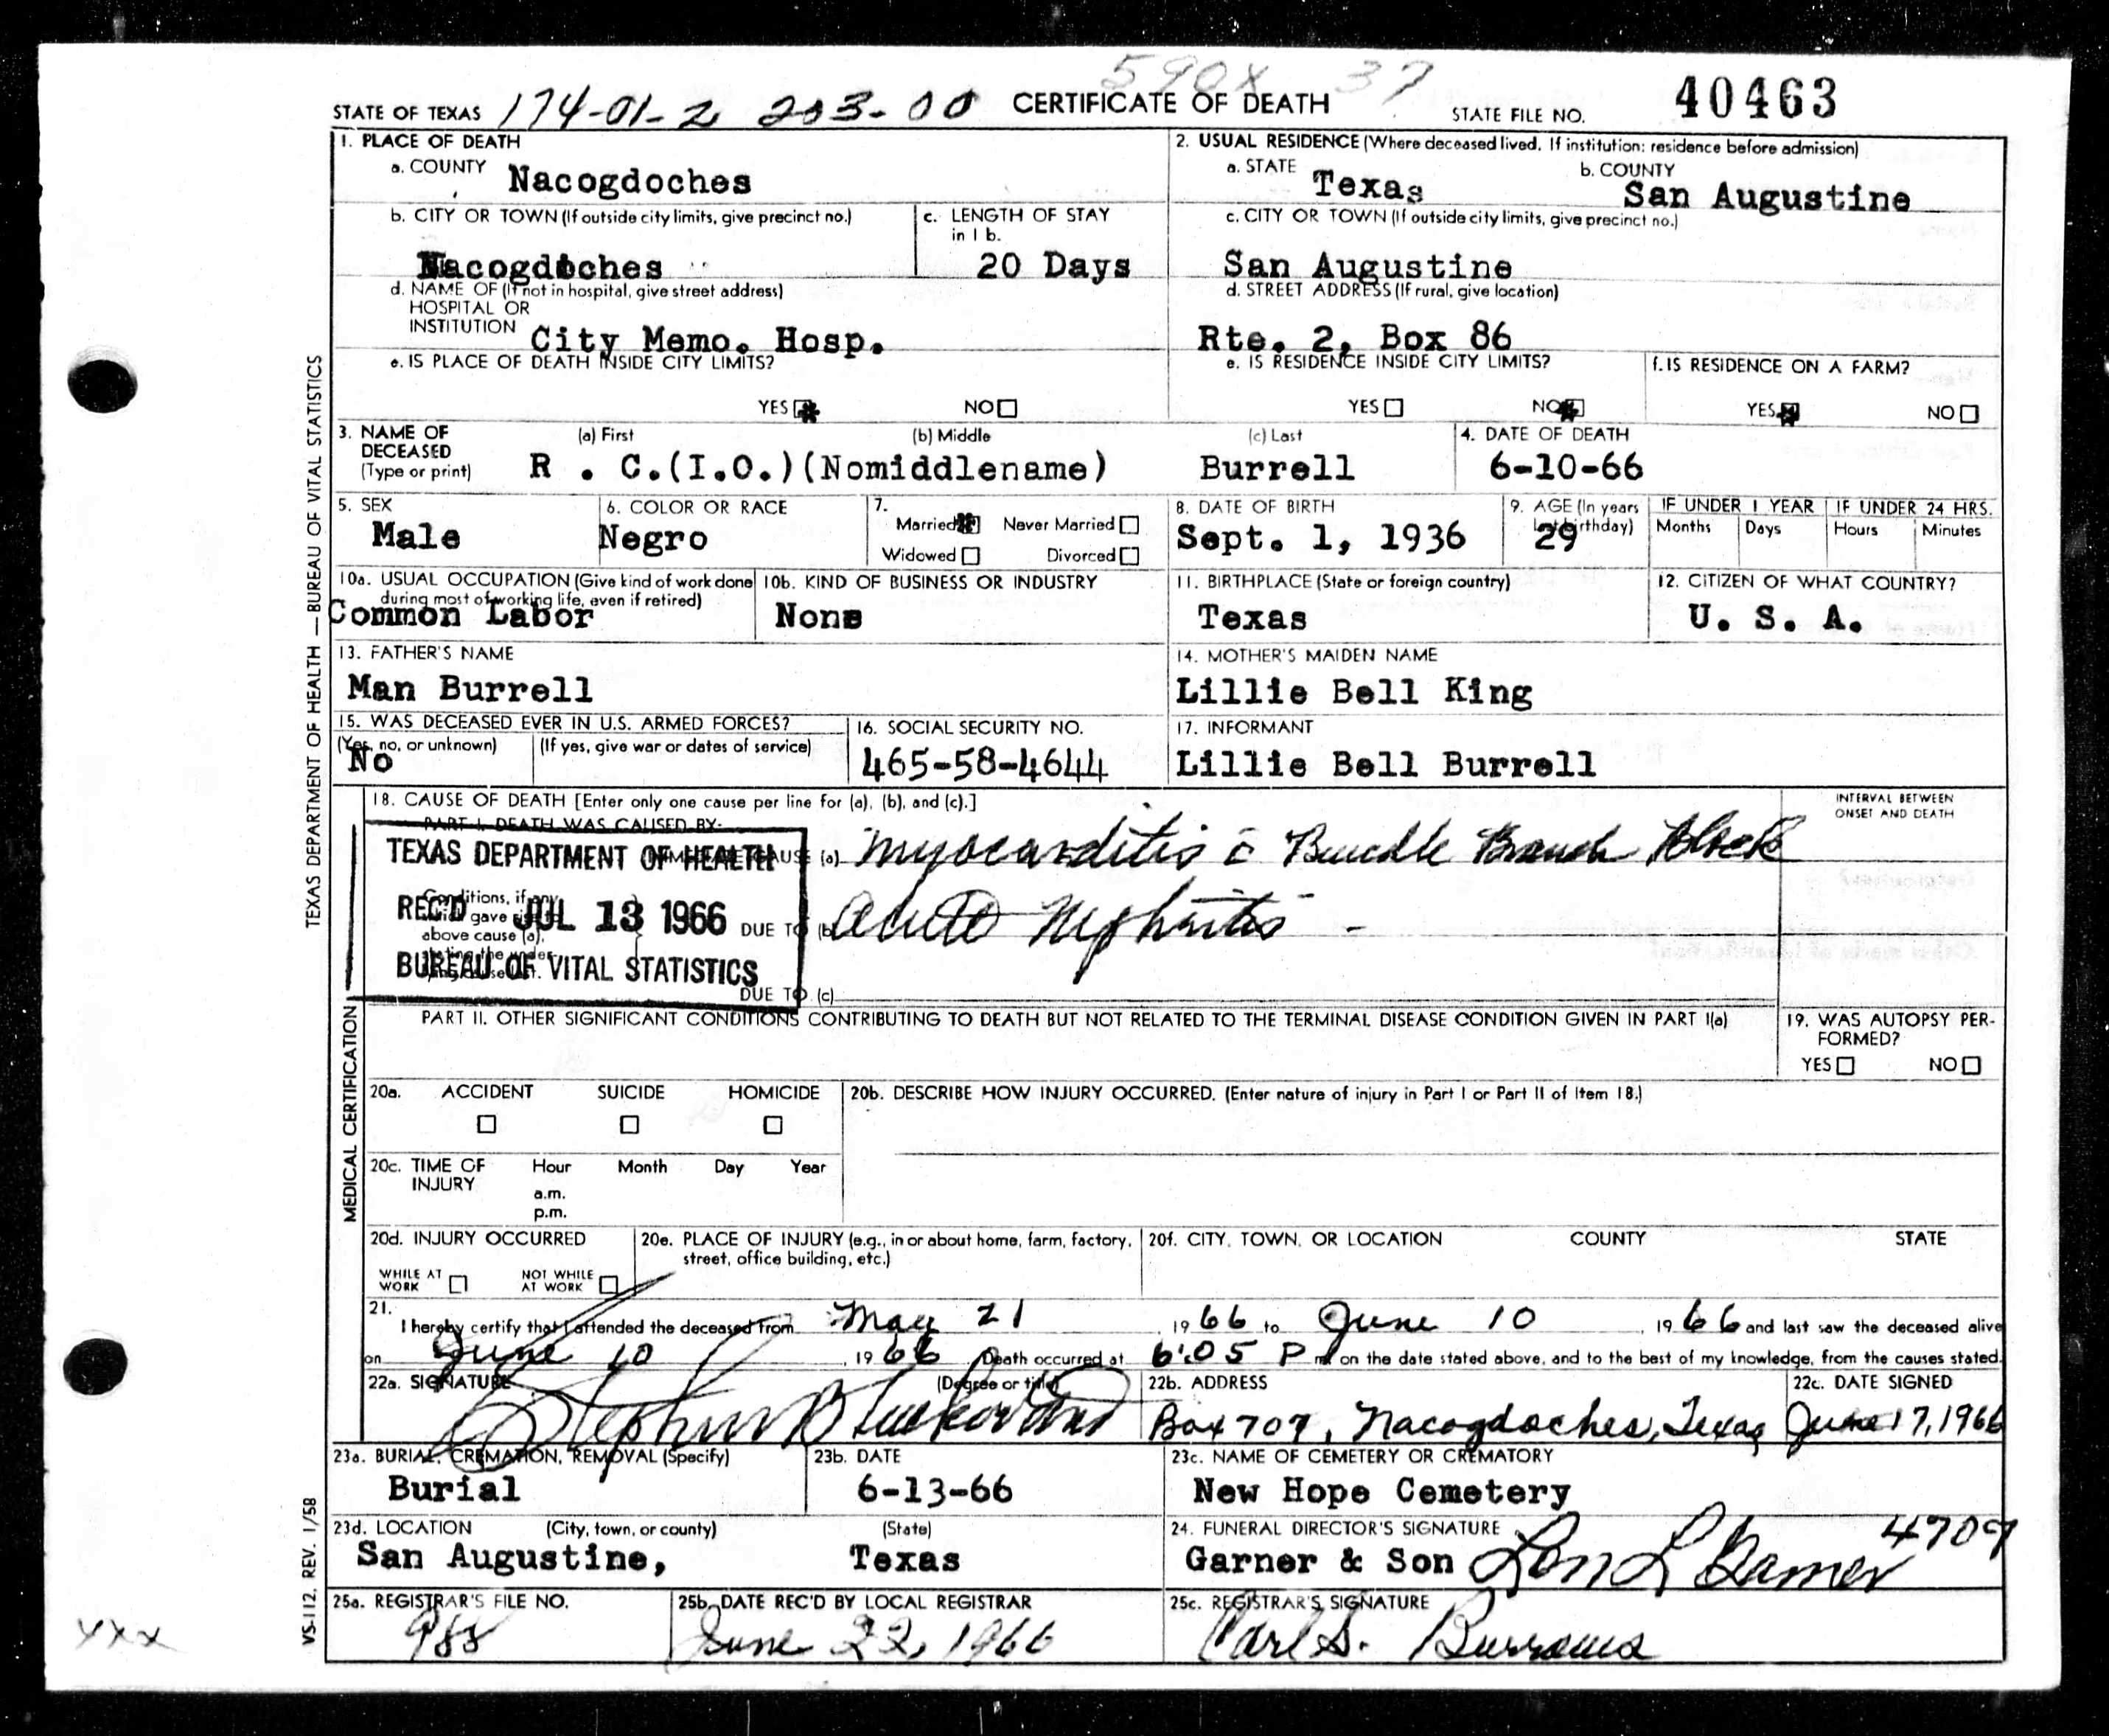 590X 37
STATE OF TEXAS 174-01-2 203-00 CERTIFICATE OF DEATH STATE FILE NO. 40463
1. PLACE OF DEATH
a. COUNTY Nacogdoches
2. USUAL RESIDENCE (Where deceased lived. If institution: residence before admission)
a. STATE Texas b. COUNTY San Augustine
b. CITY OR TOWN (If outside city limits, give precinct no.)
Nacogdoches
c. LENGTH OF STAY in 1 b.
20 Days
c. CITY OR TOWN (If outside city limits, give precinct no.)
San Augustine
d. NAME OF (If not in hospital, give street address)
HOSPITAL OR
INSTITUTION City Memo. Hosp.
d. STREET ADDRESS (If rural, give location)
Rte. 2, Box 86
e. IS PLACE OF DEATH INSIDE CITY LIMITS?
YES NO
e. IS RESIDENCE INSIDE CITY LIMITS?
YES NO
f. IS RESIDENCE ON A FARM?
YES NO
3. NAME OF DECEASED (Type or print)
(a) First (b) Middle (c) Last
R . C.(I.O.)(Nomiddlename) Burrell
4. DATE OF DEATH
6-10-66
5. SEX
Male
6. COLOR OR RACE
Negro
7.
Married Never Married
Widowed Divorced
8. DATE OF BIRTH
Sept. 1, 1936
9. AGE (In years last birthday)
29
IF UNDER 1 YEAR
Months Days
IF UNDER 24 HRS.
Hours Minutes
10a. USUAL OCCUPATION (Give kind of work done
during most of working life, even if retired)
Common Labor
10b. KIND OF BUSINESS OR INDUSTRY
None
11. BIRTHPLACE (State or foreign country)
Texas
12. CITIZEN OF WHAT COUNTRY?
U. S. A.
13. FATHER'S NAME
Man Burrell
14. MOTHER'S MAIDEN NAME
Lillie Bell King
15. WAS DECEASED EVER IN U.S. ARMED FORCES?
(Yes, no, or unknown) (If yes, give war or dates of service)
No
16. SOCIAL SECURITY NO.
465-58-4644
17. INFORMANT
Lillie Bell Burrell
18. CAUSE OF DEATH [Enter only one cause per line for (a), (b), and (c).]
INTERVAL BETWEEN
ONSET AND DEATH
PART I. DEATH WAS CAUSED BY:
(a) Myocarditis c̄ Bundle Branch Block
TEXAS DEPARTMENT OF HEALTH
REC'D JUL 13 1966
BUREAU OF VITAL STATISTICS
Conditions, if any,
which gave rise to
above cause (a),
stating the under-
DUE TO (b) Acute Nephritis -
DUE TO (c)
PART II. OTHER SIGNIFICANT CONDITIONS CONTRIBUTING TO DEATH BUT NOT RELATED TO THE TERMINAL DISEASE CONDITION GIVEN IN PART I(a)
19. WAS AUTOPSY PER-
FORMED?
YES NO
20a. ACCIDENT SUICIDE HOMICIDE
20b. DESCRIBE HOW INJURY OCCURRED. (Enter nature of injury in Part I or Part II of Item 18.)
20c. TIME OF INJURY
Hour Month Day Year
a.m.
p.m.
20d. INJURY OCCURRED
WHILE AT WORK NOT WHILE AT WORK
20e. PLACE OF INJURY (e.g., in or about home, farm, factory,
street, office building, etc.)
20f. CITY, TOWN, OR LOCATION COUNTY STATE
21.
I hereby certify that I attended the deceased from May 21, 1966 to June 10, 1966 and last saw the deceased alive
on June 10, 1966 Death occurred at 6:05 P m on the date stated above, and to the best of my knowledge, from the causes stated.
22a. SIGNATURE (Degree or title)
Stephen B
22b. ADDRESS
Box 707, Nacogdoches, Texas
22c. DATE SIGNED
June 17, 1966
23a. BURIAL, CREMATION, REMOVAL (Specify)
Burial
23b. DATE
6-13-66
23c. NAME OF CEMETERY OR CREMATORY
New Hope Cemetery
23d. LOCATION (City, town, or county) (State)
San Augustine, Texas
24. FUNERAL DIRECTOR'S SIGNATURE
Garner & Son Lon L Garner 4709
25a. REGISTRAR'S FILE NO.
988
25b. DATE REC'D BY LOCAL REGISTRAR
June 22, 1966
25c. REGISTRAR'S SIGNATURE
Carl S. Burrows
TEXAS DEPARTMENT OF HEALTH — BUREAU OF VITAL STATISTICS
MEDICAL CERTIFICATION
VS-112. REV. 1/58
xxx